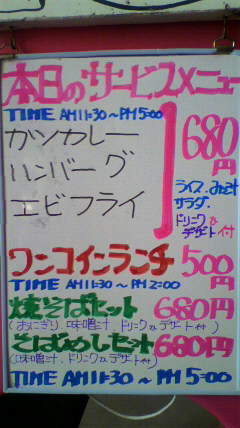 本日のサービスメニュー
TIME AM11:30〜PM5:00
カツカレー
ハンバーグ
エビフライ
680円
ライス.みそ汁
サラダ.
ドリンク&
デザート付
ワンコインランチ 500円
TIME AM11:30〜PM2:00
焼そばセット 680円
(おにぎり.味噌汁.ドリンク&デザート付)
そばめしセット 680円
(味噌汁.ドリンク&デザート付)
TIME AM11:30〜PM5:00